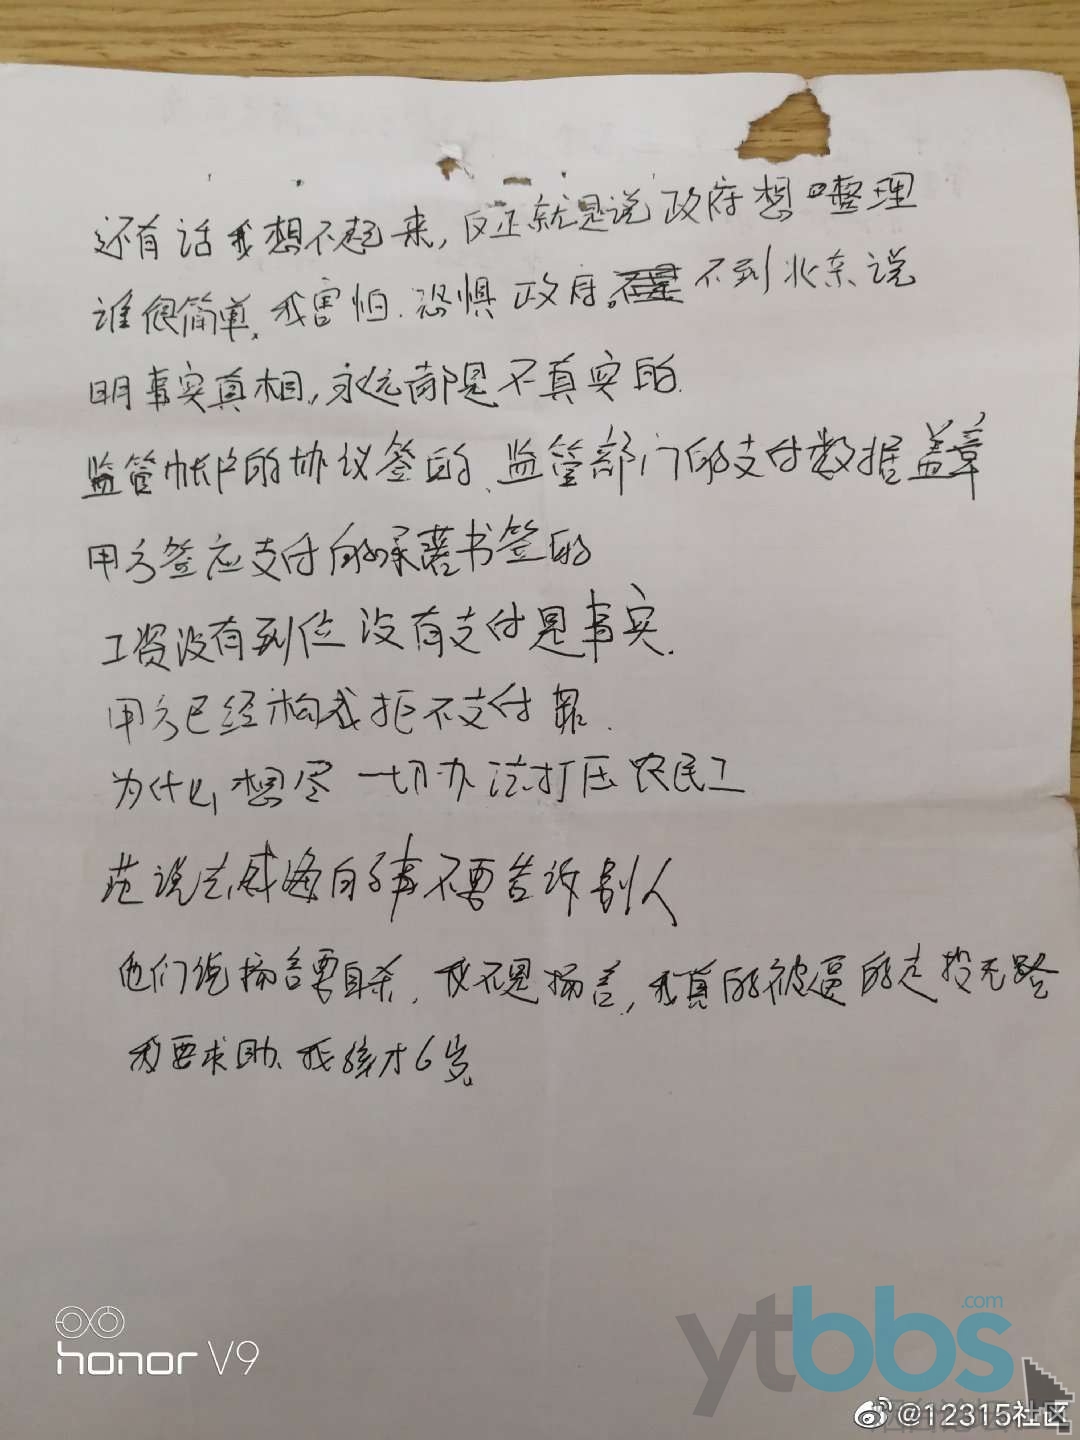 还有话我想不起来，反正就是说政府想整理
谁很简单，我害怕、恐惧政府。不到北京说
明事实真相，永远都是不真实的.
监管帐户的协议签的、监管部门的支付数据盖章
甲方签应支付的承诺书签的
工资没有到位没有支付是事实.
甲方已经构成拒不支付罪.
为什么想尽一切办法打压农民工
范说去威海的事不要告诉别人
他们说扬言要自杀，我不是扬言，我真的被逼的走投无路
我要求助、我孩才6岁
honor V9
ytbbs.com
@12315社区